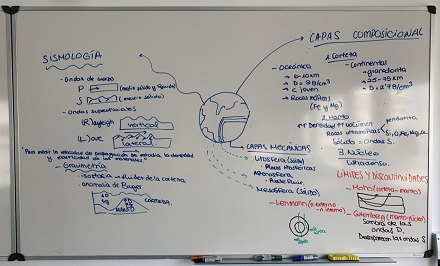 SISMOLOGÍA
- Ondas de cuerpo
P (medio sólido y líquido)
S (medio sólido)
- Ondas superficiales
(R)ayleigh vertical
(L)ove lateral
"Para medir la velocidad de propagación se estudia la densidad
y elasticidad de los materiales"
- Gravimetría
- isostasia → fluidez de la corteza
- anomalía de Bouguer
corteza
CAPAS COMPOSICIONAL
1. Corteza
- Oceánica
→ 6-10 km
→ D = 3 g/cm³
→ < joven
→ Rocas máficas
(Fe y Mg)
- Continental
→ granodiorita
→ 25-75 km
→ D = 2'7 g/cm³
2. Manto
↑↑ Densidad ↑↑ volumen
Rocas ultramáficas
Sólido = ondas S
peridotita
Si, O, Fe, Mg
3. Núcleo
Ultradenso
CAPAS MECÁNICAS
Litosfera (sólida)
- Placas litosféricas
Astenosfera
- Puede fluir
Mesosfera (sólida)
- Lehmann (n. externo
- n. interno)
LÍMITES Y DISCONTINUIDADES
- Moho (corteza - manto)
- Gutenberg (manto - núcleo)
Sombras de las
ondas P,
Desaparecen las ondas S